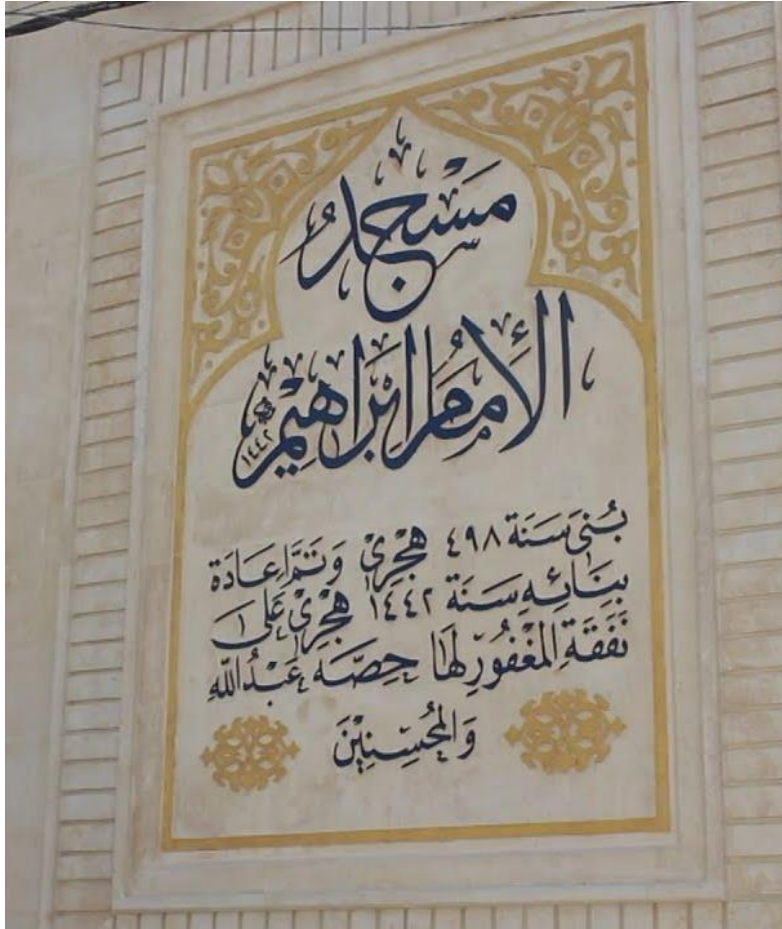 مَسْجِدُ
الإِمَامُ ابْرَاهِيْم
١٤٤٢
بُنِيَ سَنَة ٤٩٨ هِجْرِيْ وَتَمَّ اِعَادَة
بِنَائِهِ سَنَة ١٤٤٢ هِجْرِيْ عَلَى
نَفَقَةِ المَغْفُوْرِ لَهَا حِصَّه عَبْدُ اللّٰهِ
وَالمُحْسِنِيْنَ